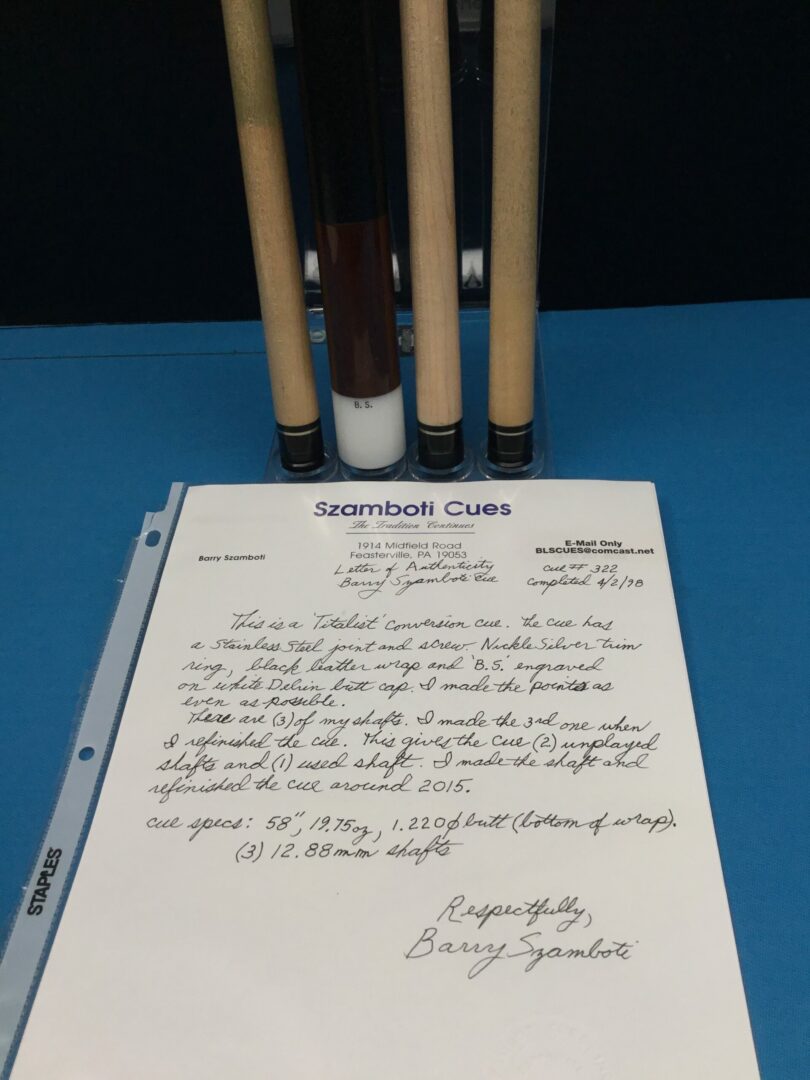 B. S.
Szamboti Cues
The Tradition Continues
1914 Midfield Road
Feasterville, PA 19053
Barry Szamboti
E-Mail Only
BLSCUES@comcast.net
Letter of Authenticity
Barry Szamboti cue
cue # 322
Completed 4/2/98
This is a 'Titalist' conversion cue. The cue has
a Stainless Steel joint and screw. Nickle Silver trim
ring, black leather wrap and 'B.S.' engraved
on white Delrin butt cap. I made the points as
even as possible.
There are (3) of my shafts. I made the 3rd one when
I refinished the cue. This gives the cue (2) unplayed
shafts and (1) used shaft. I made the shaft and
refinished the cue around 2015.
cue specs: 58", 19.75oz, 1.220ϕ butt (bottom of wrap).
(3) 12.88mm shafts
Respectfully,
Barry Szamboti
STAPLES